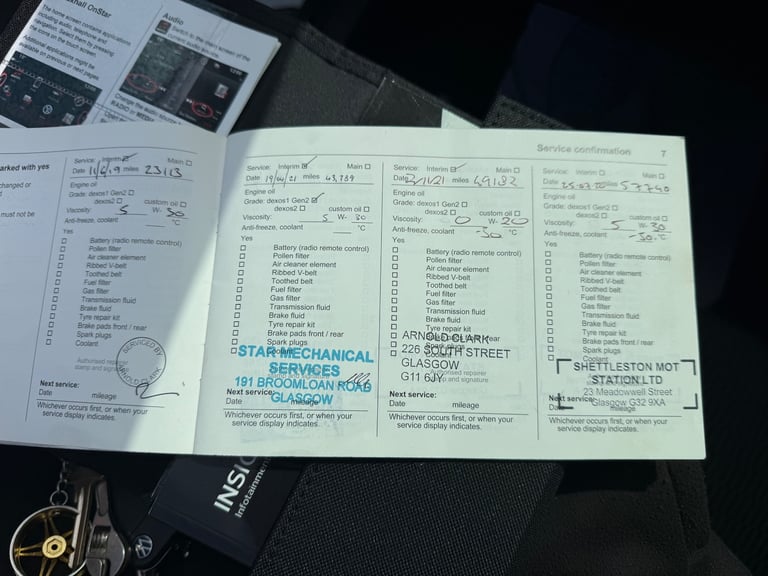 xhall OnStar
The home screen contains applications
including audio, telephone and
navigation. Select them by pressing
the icons on the touch screen.
Additional applications might be
available on previous or next pages.
Audio
Switch to the main screen of the
current audio source.
Change the audio source
RADIO or MEDIA
Service confirmation 7
arked with yes
changed or
must not be
Service: Interim ☑ Main ☐
Date 11/6/19 miles 23113
Engine oil
Grade: dexos1 Gen2 ☐
dexos2 ☐ custom oil ☐
Viscosity: 5 W- 30
Anti-freeze, coolant °C
Yes
☐ Battery (radio remote control)
☐ Pollen filter
☐ Air cleaner element
☐ Ribbed V-belt
☐ Toothed belt
☐ Fuel filter
☐ Gas filter
☐ Transmission fluid
☐ Brake fluid
☐ Tyre repair kit
☐ Brake pads front / rear
☐ Spark plugs
☐ Coolant
Authorised repairer
stamp and signature
SERVICED BY
ARNOLD CLARK
Next service:
Date mileage
Whichever occurs first, or when your
service display indicates.
Service: Interim ☑ Main ☐
Date 19/04/21 miles 43,789
Engine oil
Grade: dexos1 Gen2 ☑
dexos2 ☐ custom oil ☐
Viscosity: 5 W- 30
Anti-freeze, coolant °C
Yes
☐ Battery (radio remote control)
☐ Pollen filter
☐ Air cleaner element
☐ Ribbed V-belt
☐ Toothed belt
☐ Fuel filter
☐ Gas filter
☐ Transmission fluid
☐ Brake fluid
☐ Tyre repair kit
☐ Brake pads front / rear
☐ Spark plugs
☐ Coolant
STAR MECHANICAL
SERVICES
191 BROOMLOAN ROAD
GLASGOW
Next service:
Date mileage
Whichever occurs first, or when your
service display indicates.
Service: Interim ☑ Main ☐
Date /11/21 miles 49182
Engine oil
Grade: dexos1 Gen2 ☐
dexos2 ☐ custom oil ☐
Viscosity: 0 W- 20
Anti-freeze, coolant -30 °C
Yes
☐ Battery (radio remote control)
☐ Pollen filter
☐ Air cleaner element
☐ Ribbed V-belt
☐ Toothed belt
☐ Fuel filter
☐ Gas filter
☐ Transmission fluid
☐ Brake fluid
☐ Tyre repair kit
☐ Brake pads front / rear
☐ Spark plugs
☐ Coolant
ARNOLD CLARK
226 SOUTH STREET
GLASGOW
G11 6JY
Authorised repairer
stamp and signature
Next service:
Date mileage
Whichever occurs first, or when your
service display indicates.
Service: Interim ☐ Main ☐
Date 25.03. miles 57740
Engine oil
Grade: dexos1 Gen2 ☐
dexos2 ☐ custom oil ☐
Viscosity: 5 W- 30
Anti-freeze, coolant -30 °C
Yes
☐ Battery (radio remote control)
☐ Pollen filter
☐ Air cleaner element
☐ Ribbed V-belt
☐ Toothed belt
☐ Fuel filter
☐ Gas filter
☐ Transmission fluid
☐ Brake fluid
☐ Tyre repair kit
☐ Brake pads front / rear
☐ Spark plugs
☐ Coolant
SHETTLESTON MOT
STATION LTD
23 Meadowell Street
Glasgow G32 9XA
Next service:
Date mileage
Whichever occurs first, or when your
service display indicates.
INSIG
Infotainmen